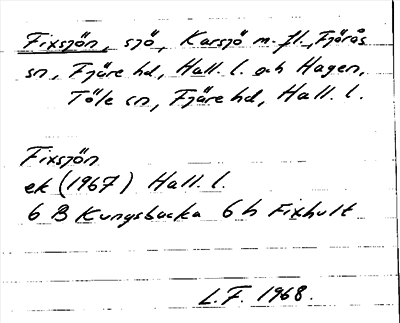 Fixsjön, sjö, Karsjö m.fl., Fjärås
sn, Fjäre hd, Hall. l. och Hagen,
Tölö sn, Fjäre hd, Hall. l.
Fixsjön
ek (1967) Hall. l.
6 B Kungsbacka 6 h Fixhult
L.F. 1968.